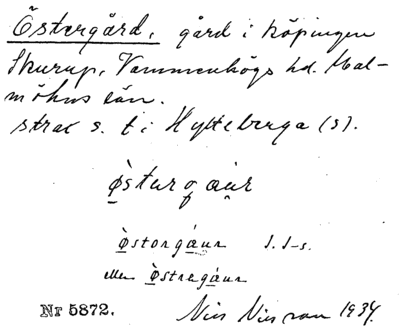 Östergård, gård i köpingen
Skurup, Vemmenhögs hd. Mal-
möhus län.
strax s. t i Hylteberga (s).
ø̀sturgaur
ø̀storgáur I. I-s.
eller ø̀stregáur
Nr 5872. Nils 1934.